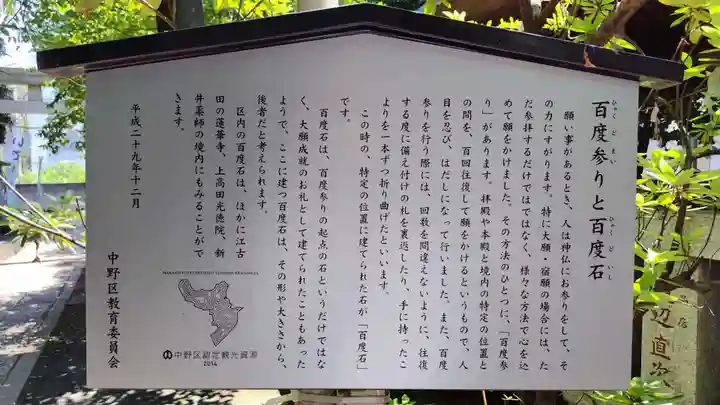 百度参りと百度石
ひゃくどまいり
ひゃくどいし
願い事があるとき、人は神仏にお参りをして、そ
の力にすがります。特に大願・宿願の場合には、た
だ参拝するだけではではなく、様々な方法で心を込
めて願をかけました。その方法のひとつに、「百度参
り」があります。拝殿や本殿と境内の特定の位置と
の間を、百回往復して願をかけるというもので、人
目を忍び、はだしになって行いました。また、百度
参りを行う際には、回数を間違えないように、往復
する度に備え付けの札を裏返したり、手に持ったこ
よりを一本ずつ折り曲げたといいます。
この時の、特定の位置に建てられた石が「百度石」
です。
百度石は、百度参りの起点の石というだけではな
く、大願成就のお礼として建てられたこともあった
ようで、ここに建つ百度石は、その形や大きさから、
後者だと考えられます。
区内の百度石は、ほかに江古
田の蓮華寺、上高田光徳院、新
井薬師の境内にもみることがで
きます。
平成二十九年十二月
中野区教育委員会
NAKANO CITY CERTIFIED TOURISM RESOURCES
中野区認定観光資源
2014
辺直次